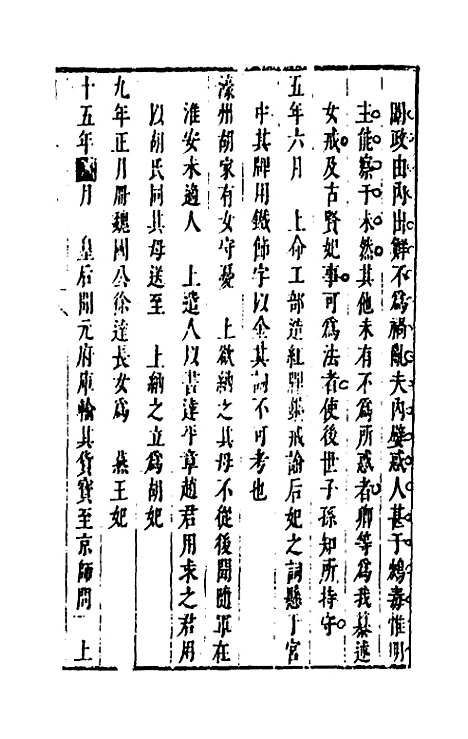 閨政由內出鮮不為禍亂夫內嬖惑人甚于鴆毒惟明
主能察于未然其他未有不為所惑者卿等為我纂述
女戒及古賢妃事可為法者使後世子孫知所持守
五年六月　上命工部造紅牌鐫戒諭后妃之詞懸于宮
中其牌用鐵飾字以金其詞不可考也
濠州胡家有女守憂　上欲納之其母不從後聞隨軍在
淮安未適人　上遣人以書達平章趙君用求之君用
以胡氏同其母送至　上納之立為胡妃
九年正月冊魏國公徐達長女為　燕王妃
十五年　月　皇后聞元府庫輸其貨寶至京師問　上